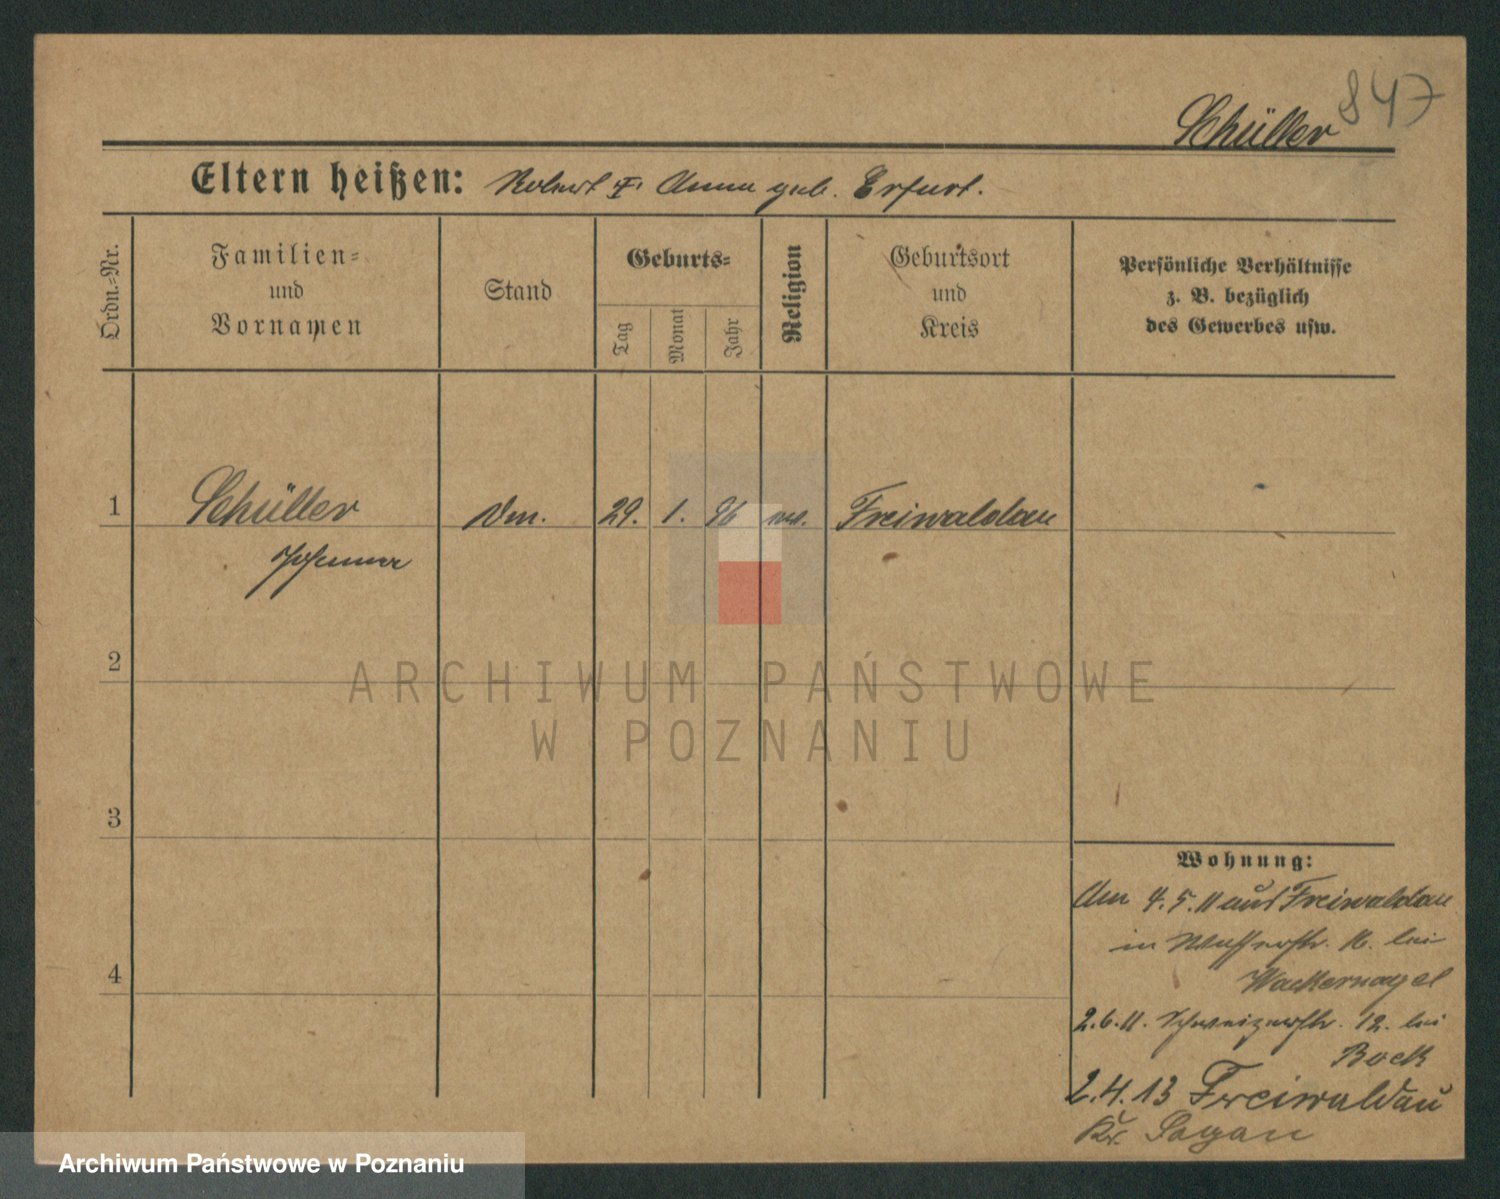 847
Schüller
Eltern heißen: Robert u. Anna geb. Erfurt.
Ordn.-Nr.
Familien-
und
Vornamen
Stand
Geburts-
Tag
Monat
Jahr
Religion
Geburtsort
und
Kreis
Persönliche Verhältnisse
z. B. bezüglich
des Gewerbes usw.
1 Schüller 29. 1. 96 ev. Freiwaldau
2
ARCHIWUM PAŃSTWOWE
W POZNANIU
3
4
Wohnung:
Am 4.5.11 aus Freiwaldau
in 16. bei
Wackernagel
2.6.11. Schweizerstr. 12. bei
Bock
2.4.13 Freiwaldau
Kr. Sagan
Archiwum Państwowe w Poznaniu